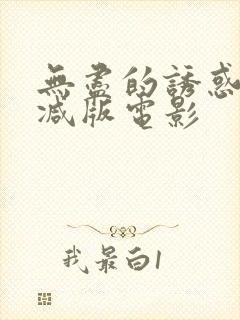 無盡的誘惑
减版電影
我最白1